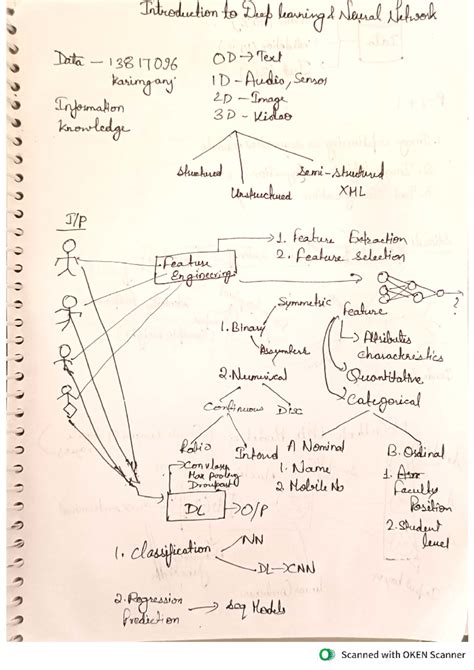 Introduction to Deep learning & Neural Network
Data - 13817096
Karimganj
Information
Knowledge
0D → Text
1D - Audio, Sensor
2D - Image
3D - Video
Structured
Unstructured
Semi-structured
XML
I/P
Feature
Engineering
1. Feature Extraction
2. Feature Selection
?
Symmetric
1. Binary
Asymmetric
2. Numerical
Continuous
Disc
Ratio
Feature
Attributes
characteristics
Quantitative
Categorical
A Nominal
1. Name
2. Mobile No
B. Ordinal
1.
Faculty
Position
2. Student
level
Max pooling
DL → O/P
1. Classification
NN
DL → CNN
2. Regression
Prediction
→ Seq Models
Scanned with OKEN Scanner